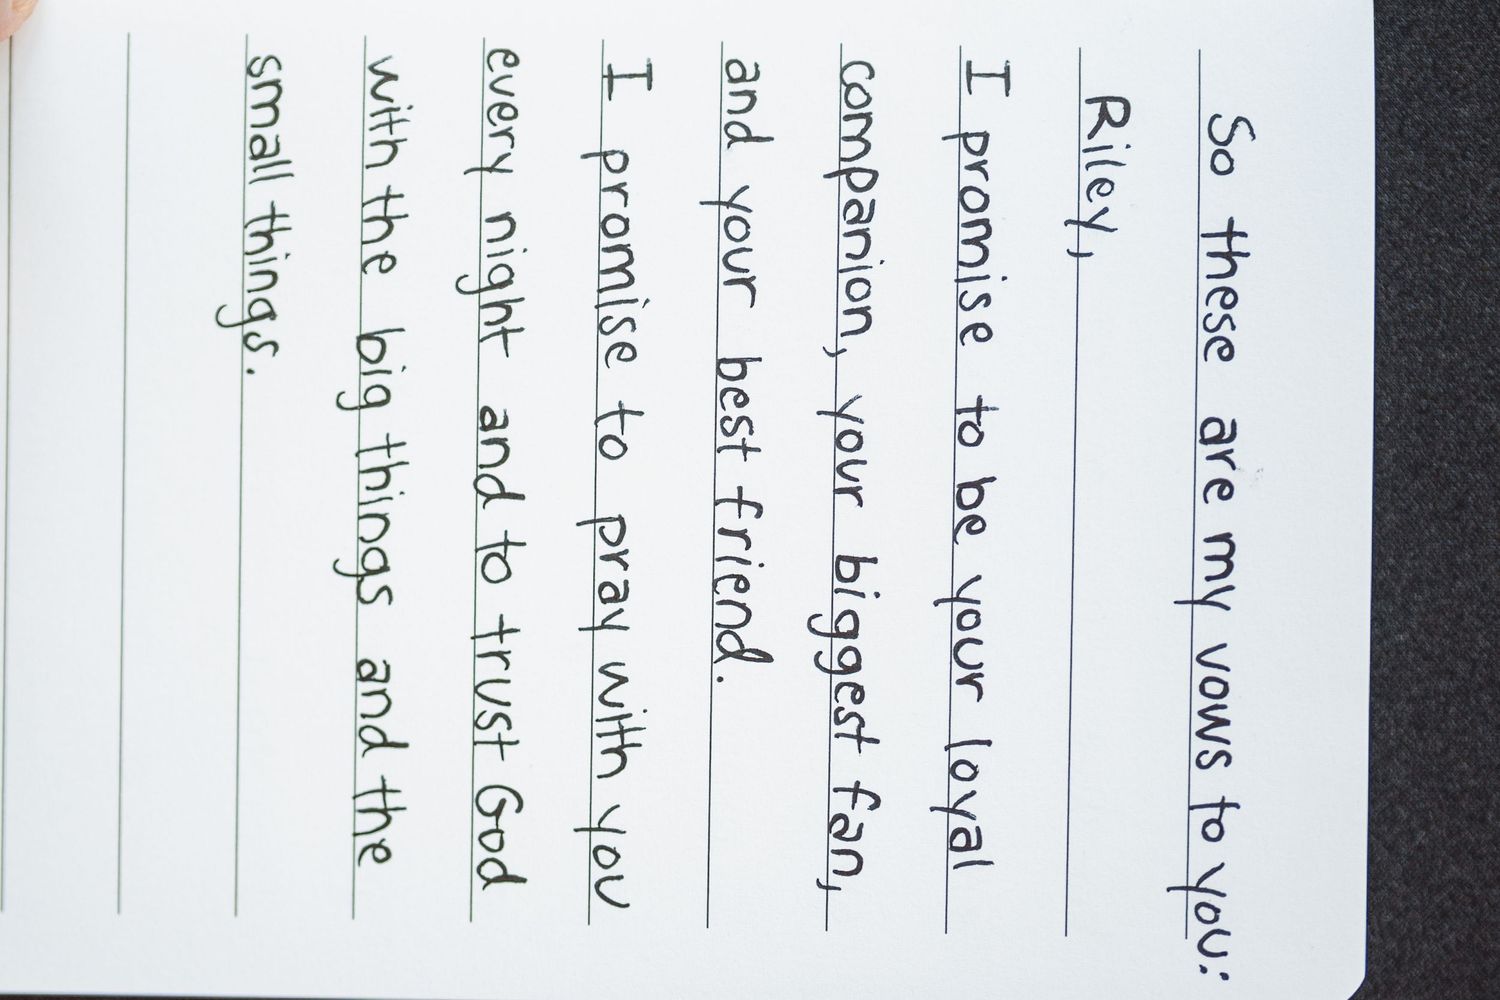 So these are my vows to you:
Riley,
I promise to be your loyal
companion, your biggest fan,
and your best friend.
I promise to pray with you
every night and to trust God
with the big things and the
small things.